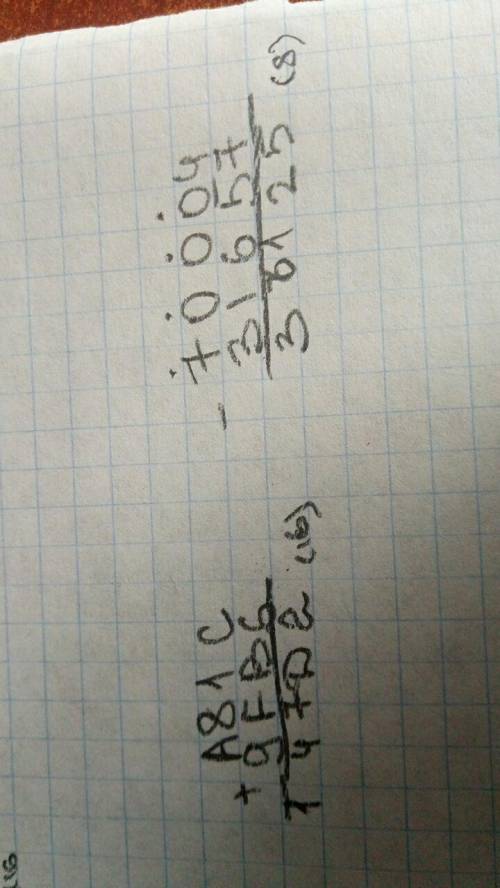 16
+
A81C
9FB6
147D2 (16)
-
70004
31657
36125 (8)